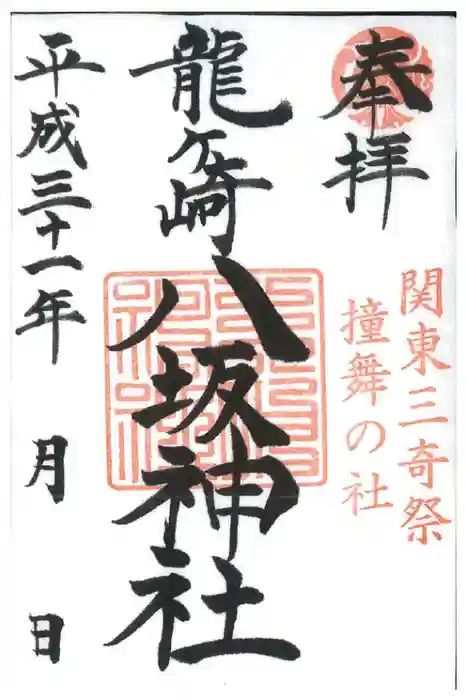 奉拝
関東三奇祭
撞舞の社
龍ヶ崎
八坂神社
平成三十一年 月 日